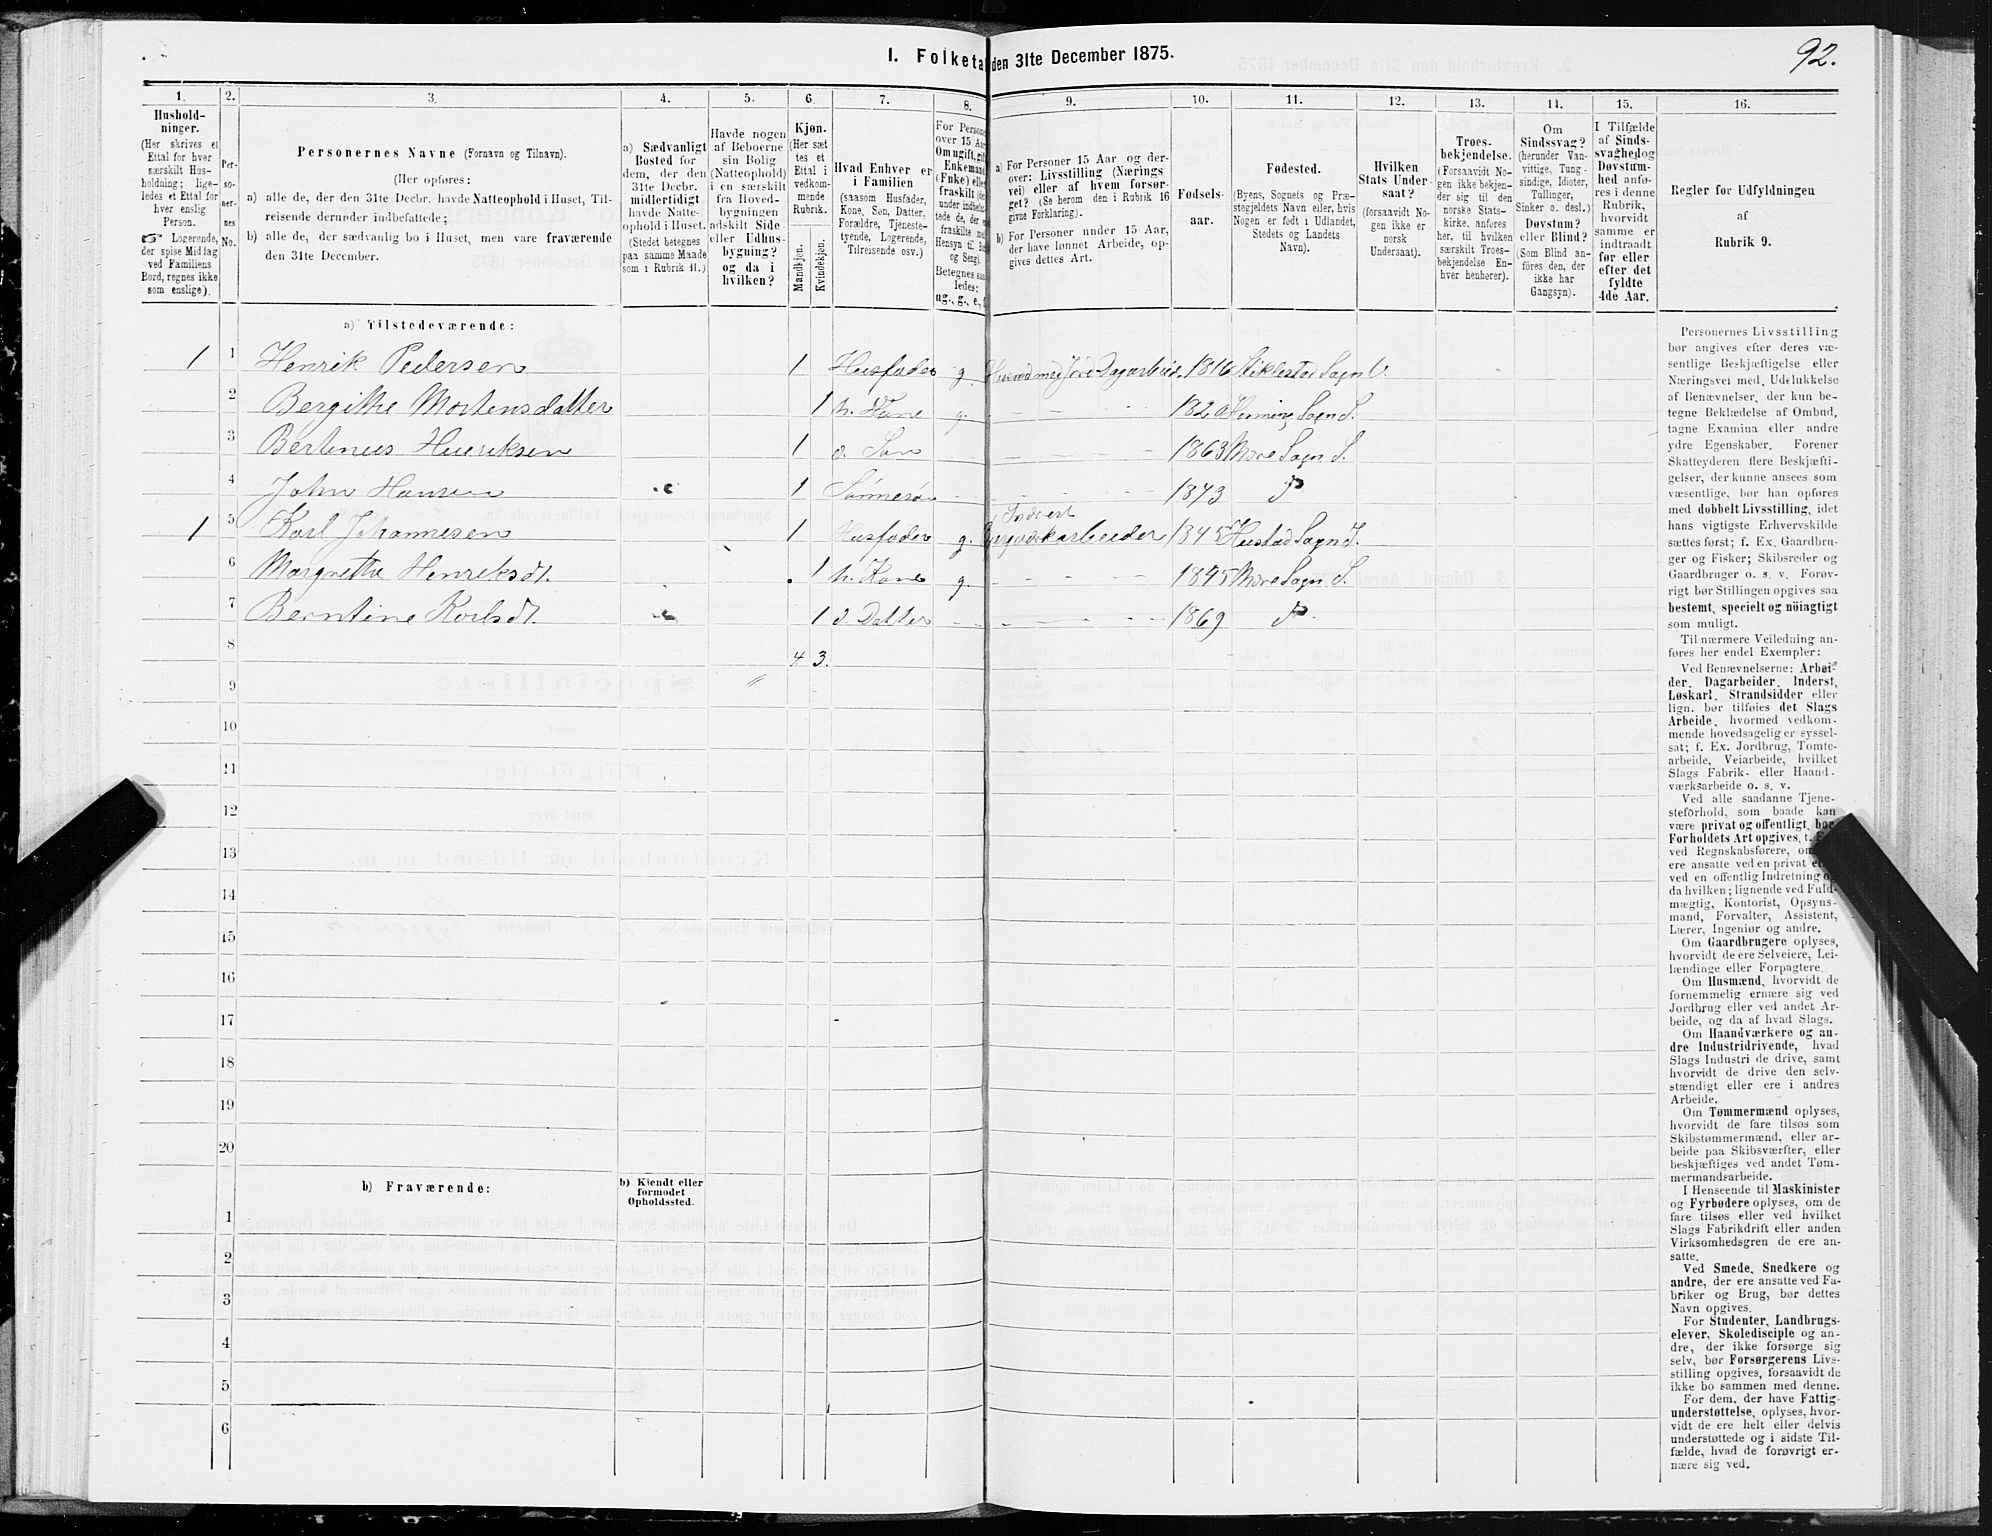 92.
I. Folketal den 31te December 1875.
1. 2. 3. 4. 5. 6. 7. 8. 9. 10. 11. 12. 13. 14. 15. 16.
Hushold-
ninger.
(Her skrives et
Ettal for hver
særskilt Hus-
holdning; lige-
ledes et Ettal for
hver enslig
Person.
☞ Logerende,
der spise Middag
ved Familiens
Bord, regnes ikke
som enslige).
Per-
so-
ner-
nes
No.
Personernes Navne (Fornavn og Tilnavn).
(Her opføres:
a) alle de, der den 31te Decbr. havde Natteophold i Huset, Til-
reisende derunder indbefattede;
b) alle de, der sædvanlig bo i Huset, men vare fraværende
den 31te December.
a) Sædvanligt
Bosted for
dem, der den
31te Decbr.
midlertidigt
havde Natte-
ophold i Huset.
(Stedet betegnes
paa samme Maade
som i Rubrik 11.)
Havde nogen
af Beboerne
sin Bolig
(Natteophold)
i en særskilt
fra Hoved-
bygningen
adskilt Side-
eller Udhus-
bygning?
og da i
hvilken?
Kjøn.
(Her sæt
tes et
Ettal i
vedkom-
mende
Rubrik.
Mandkjøn.
Kvindekjøn.
Hvad Enhver er
i Familien
(saasom Husfader,
Kone, Søn, Datter,
Forældre, Tjeneste-
tyende, Logerende,
Tilreisende osv.)
For Persone
over 15 Aar
Om ugift, gift
Enkemand
(Enke) elle
fraskilt
a) For Personer 15 Aar og der-
over: Livsstilling (Nærings
vei) eller af hvem forsør-
get? (Se herom den i Rubrik 16
givne Forklaring).
b) For Personer under 15 Aar,
der have lønnet Arbeide, op-
gives dettes Art.
Fødsels-
aar.
Fødested.
(Byens, Sognets og Præ-
stegjeldets Navn eller, hvis
Nogen er født i Udlandet,
Stedets og Landets
Navn).
Hvilken
Stats Under-
saat?
(forsaavidt No-
gen ikke er
norsk
Undersaat).
Troes-
bekjendelse.
(Forsaavidt No-
gen ikke bekjen-
der sig til den
norske Stats-
kirke, anføres
her, til hvilken
særskilt Troes-
bekjendelse En-
hver henhører).
Om
Sindssvag?
(herunder Van-
vittige, Tung-
sindige, Idioter,
Tullinger,
Sinker o. desl.)
Døvstum?
eller Blind?
(Som Blind an-
føres den, der
ikke har
Gangsyn).
I Tilfælde
af Sinds-
svaghed og
Døvstum-
hed anfø-
res i denne
Rubrik,
hvorvidt
samme er
indtraadt
før eller
efter det
fyldte
4de Aar.
Regler for Udfyldningen
af
Rubrik 9.
a) Tilstedeværende:
1 1 Henrik Pedersen 1 Husfader g 1816
2 Bergitte Mortensdatter 1 h. Kone g. 182 Sogn S.
3 Bertinus Henriksen 1 d. Søn 1863 More Sogn S.
4 John Hansen 1 Sønnesøn 1873
Inderst
1 5 Karl Johannesen 1 Husfader g. 1845 Hustad Sogn I.
6 Margrethe Henriksdt. 1 h. Kone g. 1845 More Sogn S.
7 Berntine Karlsdt. 1 d. Datter 1869
8 4 3.
9
10
11
12
13
14
15
16
17
18
19
20
b) Fraværende:
b) Kjendt eller
formodet
Opholdssted.
1
2
3
4
5
6
Personernes Livsstilling
bør angives efter deres væ-
sentlige Beskjæftigelse eller
Næringsvei med Udelukkelse
af Benævnelser, der kun be-
tegne Beklædelse af Ombud,
tagne Examina eller andre
ydre Egenskaber. Forener
Skatteyderen flere Beskjæfti-
gelser, der kunne ansees som
væsentlige, bør han opføres
med dobbelt Livsstilling, idet
hans vigtigste Erhvervskilde
sættes først; f. Ex. Gaardbru-
ger og Fisker; Skibsreder og
Gaardbruger o. s. v. Forøv-
rigt bør Stillingen opgives saa
bestemt, specielt og nöiagtigt
som muligt.
Til nærmere Veiledning an-
føres her endel Exempler:
Ved Benævnelserne: Arbei-
der, Dagarbeider, Inderst,
Løskarl, Strandsidder eller
lign. bør tilføies det Slags
Arbeide, hvormed vedkom-
mende hovedsagelig er syssel-
sat; f. Ex. Jordbrug, Tomte-
arbeide, Veiarbeide, hvilket
Slags Fabrik- eller Haand-
værksarbeide o. s. v.
Ved alle saadanne Tjene-
steforhold, som baade kan
være privat og offentligt, bør
Forholdets Art opgives, t.
ved Regnskabsførere,
ere ansatte ved en privat
ved en offentlig Indretning og
da hvilken; lignende ved Fuld-
mægtig, Kontorist, Opsyns-
mand, Forvalter, Assistent,
Lærer, Ingeniør og andre.
Om Gaardbrugere oplyses,
hvorvidt de ere Selveiere, Lei-
lændinge eller Forpagtere.
Om Husmænd, hvorvidt de
fornemmelig ernære sig ved
Jordbrug eller ved andet Ar-
beide, og da af hvad Slags.
Om Haandværkere og an-
dre Industridrivende, hvad
Slags Industri de drive, samt
hvorvidt de drive den selv-
stændigt eller ere i andres
Arbeide.
Om Tømmermænd oplyses,
hvorvidt de fare tilsøs som
Skibstømmermænd, eller ar-
beide paa Skibsværfter, eller
beskjæftiges ved andet Tøm-
mermandsarbeide.
I Henseende til Maskinister
og Fyrbødere oplyses, om de
fare tilsøs eller ved hvilket
Slags Fabrikdrift eller anden
Virksomhedsgren de ere an-
satte.
Ved Smede, Snedkere og
andre, der ere ansatte ved Fa-
briker og Brug, bør dettes
Navn opgives.
For Studenter, Landbrugs-
elever, Skoledisciple og an-
dre, der ikke forsørge sig
selv, bør Forsørgerens Livs-
stilling opgives, forsaavidt de
ikke bo sammen med denne.
For dem, der have Fattig-
understøttelse, oplyses, hvor-
vidt de ere helt eller delvis
understøttede og i sidste Til-
fælde, hvad de forøvrigt er-
nære sig ved.